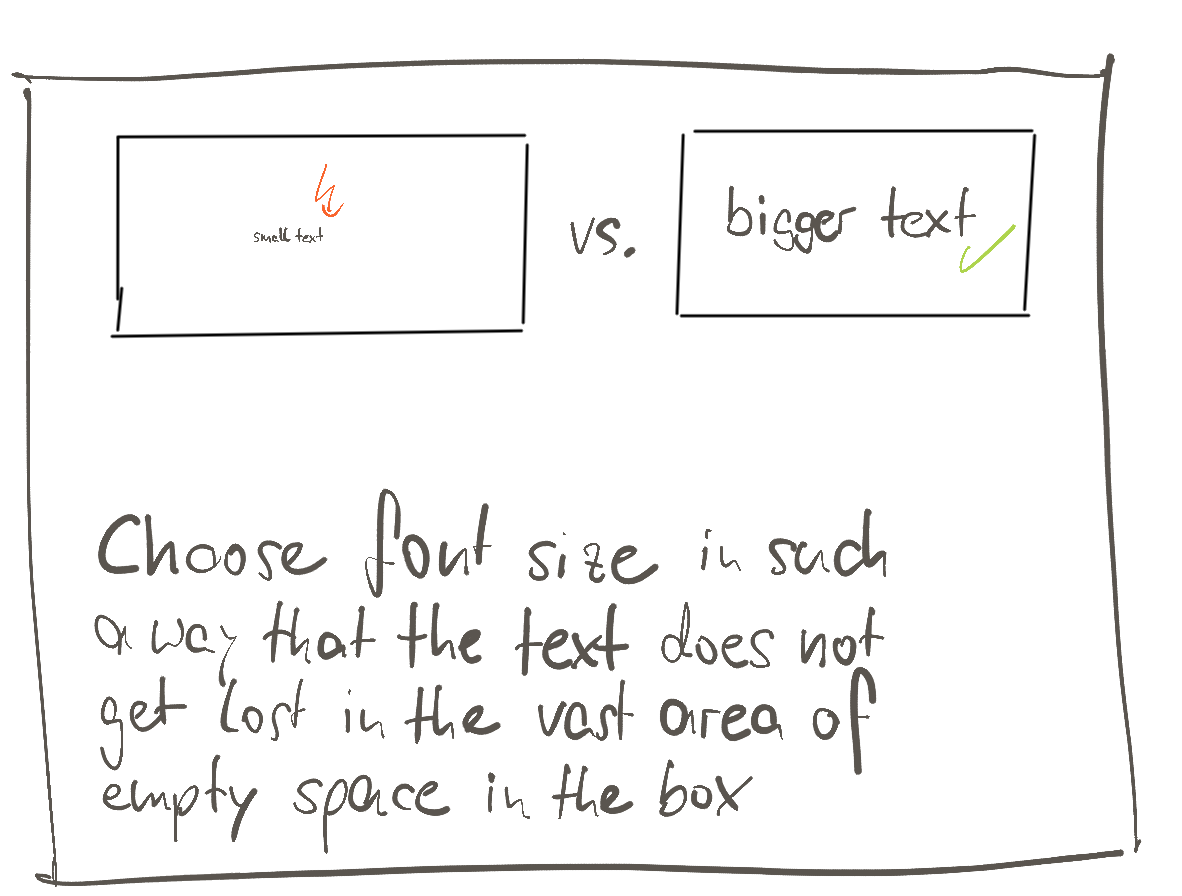 small text
vs.
bigger text
Choose font size in such
a way that the text does not
get lost in the vast area of
empty space in the box